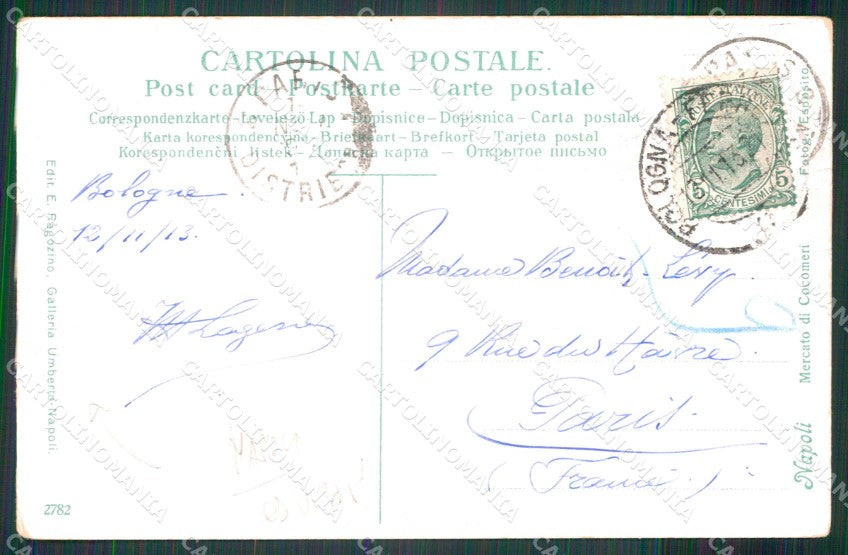 CARTOLINA POSTALE.
Post card - Postkarte - Carte postale
Correspondenzkarte - Levelező Lap - Dopisnice - Dopisnica - Carta postala
Karta korespondencyjna - Briefkaart - Brefkort - Tarjeta postal
Korespondenční lístek - Дописна карта - Открытое письмо
PARIS
DISTRIB
BOLOGNA
POSTE ITALIANE
5 5
CENTESIMI
Bologne
12/11/13.
Madame Benoît-Lévy.
9 Rue du Havre.
Paris.
(France)
Edit. E. Ragozino, Galleria Umberto-Napoli.
Napoli Mercato di Cocomeri Fotogr. Esposito
2782
CARTOLINOMANIA